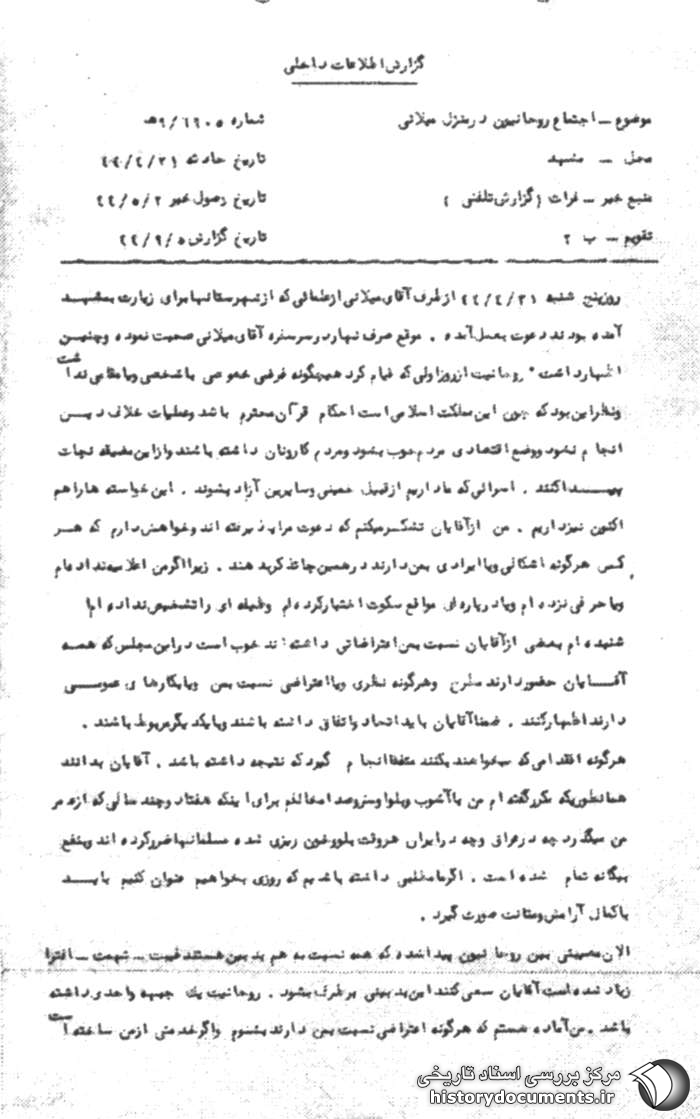 گزارش اطلاعات داخلی
موضوع ــ اجتماع روحانیون در منزل میلانی
شماره ۶۹۰۵/۹ هـ
محل ــ مشهد
تاریخ حادثه ۴۴/۴/۳۱
منبع خبر ــ فرات (گزارش تلفنی)
تاریخ وصول خبر ۴۴/۵/۲
تقویم ــ ب ۲
تاریخ گزارش ۴۴/۹/۵
روز پنج شنبه ۴۴/۴/۳۱ از طرف آقای میلانی از علمائی که از شهرستانها برای زیارت بمشهد
آمده بودند دعوت بعمل آمده . موقع صرف نهار در سر سفره آقای میلانی صحبت نموده و چنین
اظهار داشت " روحانیت از روز اولی که قیام کرد هیچگونه غرض خصوصی با شخصی و یا مقامی نداشت
و نظر این بود که چون این مملکت اسلامی است احکام قرآن محترم باشد و عملیات خلاف دین
انجام نشود و وضع اقتصادی مردم خوب بشود و مردم کار و نان داشته باشند و از این مضیقه نجات
پیدا کنند . اسرائی که ما داریم از قبیل خمینی و سایرین آزاد بشوند . این خواسته ها را هم
اکنون نیز داریم . من از آقایان تشکر میکنم که دعوت مرا پذیرفته اند و خواهش دارم که هر
کس هرگونه اشکالی و یا ایرادی بمن دارند در همین جا تذکر بدهند . زیرا اگر من اعلامیه نداده ام
و یا حرفی نزده ام و یا در پاره ای مواقع سکوت اختیار کرده ام وظیفه ای را تشخیص نداده ام
شنیده ام بعضی از آقایان نسبت بمن اعتراضاتی داشته اند خوب است در این مجلس که همه
آقایان حضور دارند مطرح و هرگونه نظری و یا اعتراضی نسبت بمن و یا بکارهای عمومی
دارند اظهار کنند . ضمنا آقایان باید اتحاد و اتفاق داشته باشند و با یکدیگر مربوط باشند .
هرگونه اقدامی که میخواهند بکنند متفقا انجام گیرد که نتیجه داشته باشد . آقایان بدانند
همانطوریکه مکرر گفته ام من با آشوب و بلوا و سر و صدا مخالفم برای اینکه هفتاد و چند سالی که از عمر
من میگذرد چه در عراق و چه در ایران هر وقت بلوا و خون ریزی شده مسلمانها ضرر کرده اند و بنفع
بیگانه تمام شده است . اگر ما مطلبی داشته باشیم که روزی بخواهیم عنوان کنیم باید
با کمال آرامش و متانت صورت گیرد .
الان مصیبتی بین روحانیون پیدا شده که همه نسبت به هم بدبین هستند غیبت ــ تهمت ــ افترا
زیاد شده است آقایان سعی کنند این بدبینی بر طرف بشود . روحانیت یک جبهه واحدی داشته
باشد . من آماده هستم که هرگونه اعتراضی نسبت بمن دارند بشنوم و اگر خدمتی از من ساخته است
مرکز بررسی اسناد تاریخی
historydocuments.ir